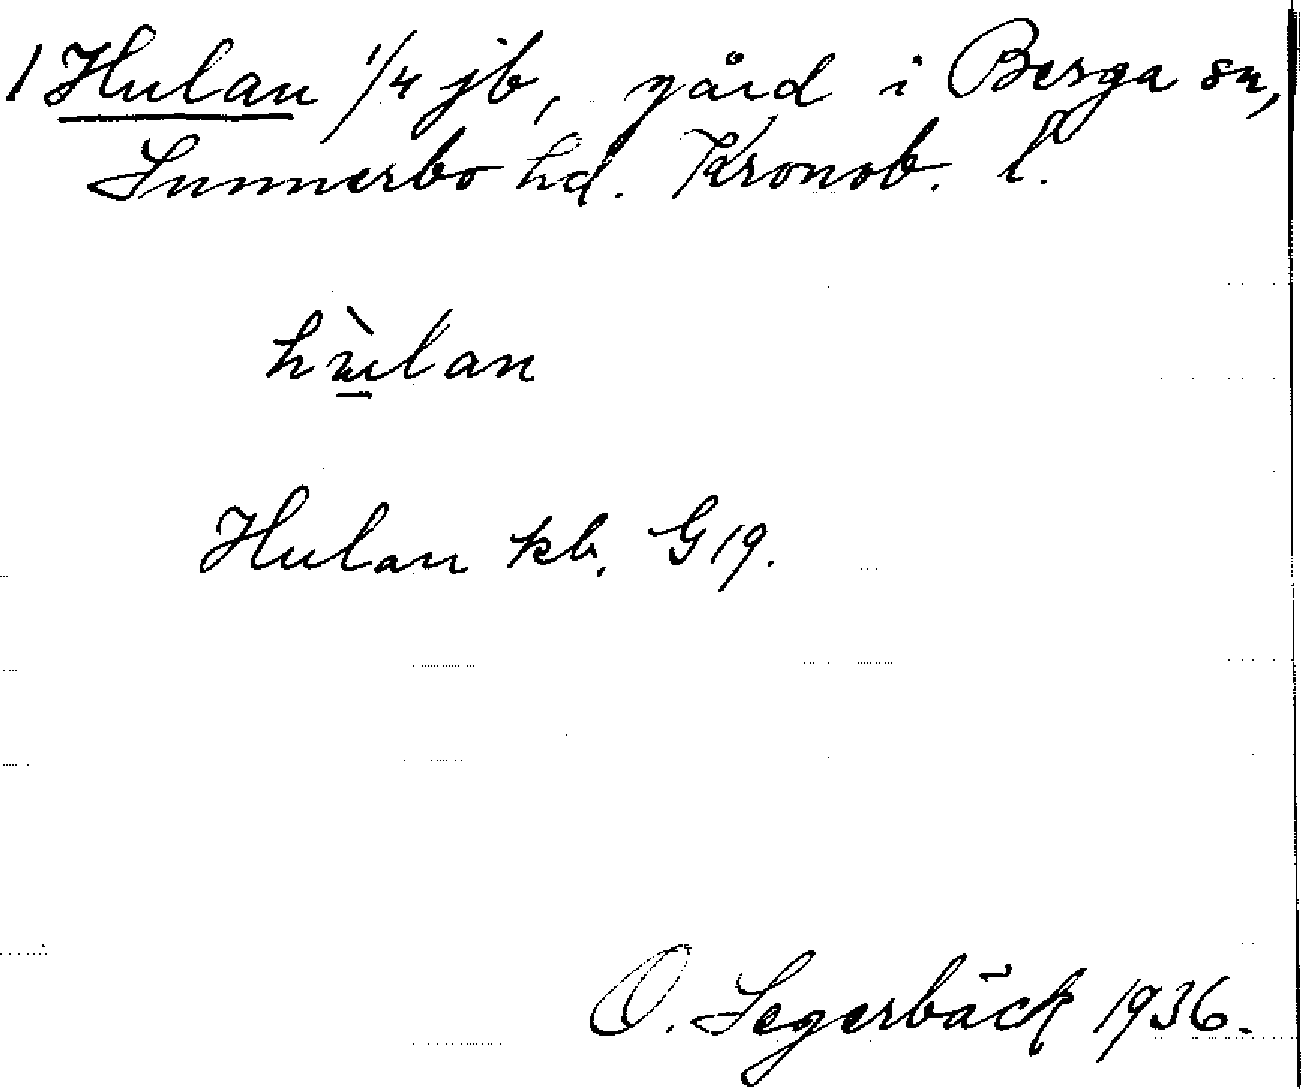 1 Hulan 1/4 jb, gård i Berga sn,
Sunnerbo hd. Kronob. l.
hù̠lan
Hulan kb. G 19.
O. Segerbäck 1936.